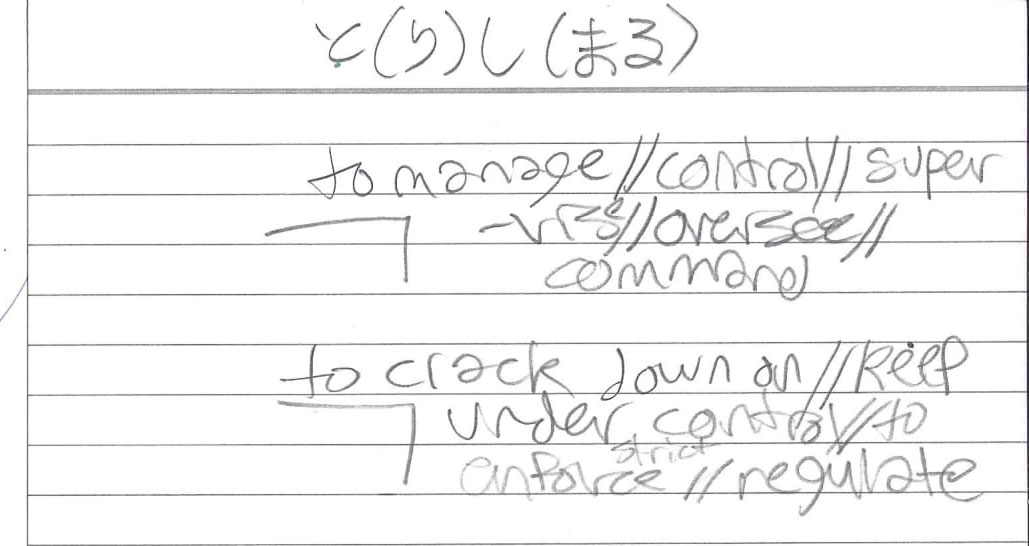 と(り)し(まる)
to manage//control//super
-vise//oversee//
command
to crack down on//keep
under control//to
strict
enforce//regulate